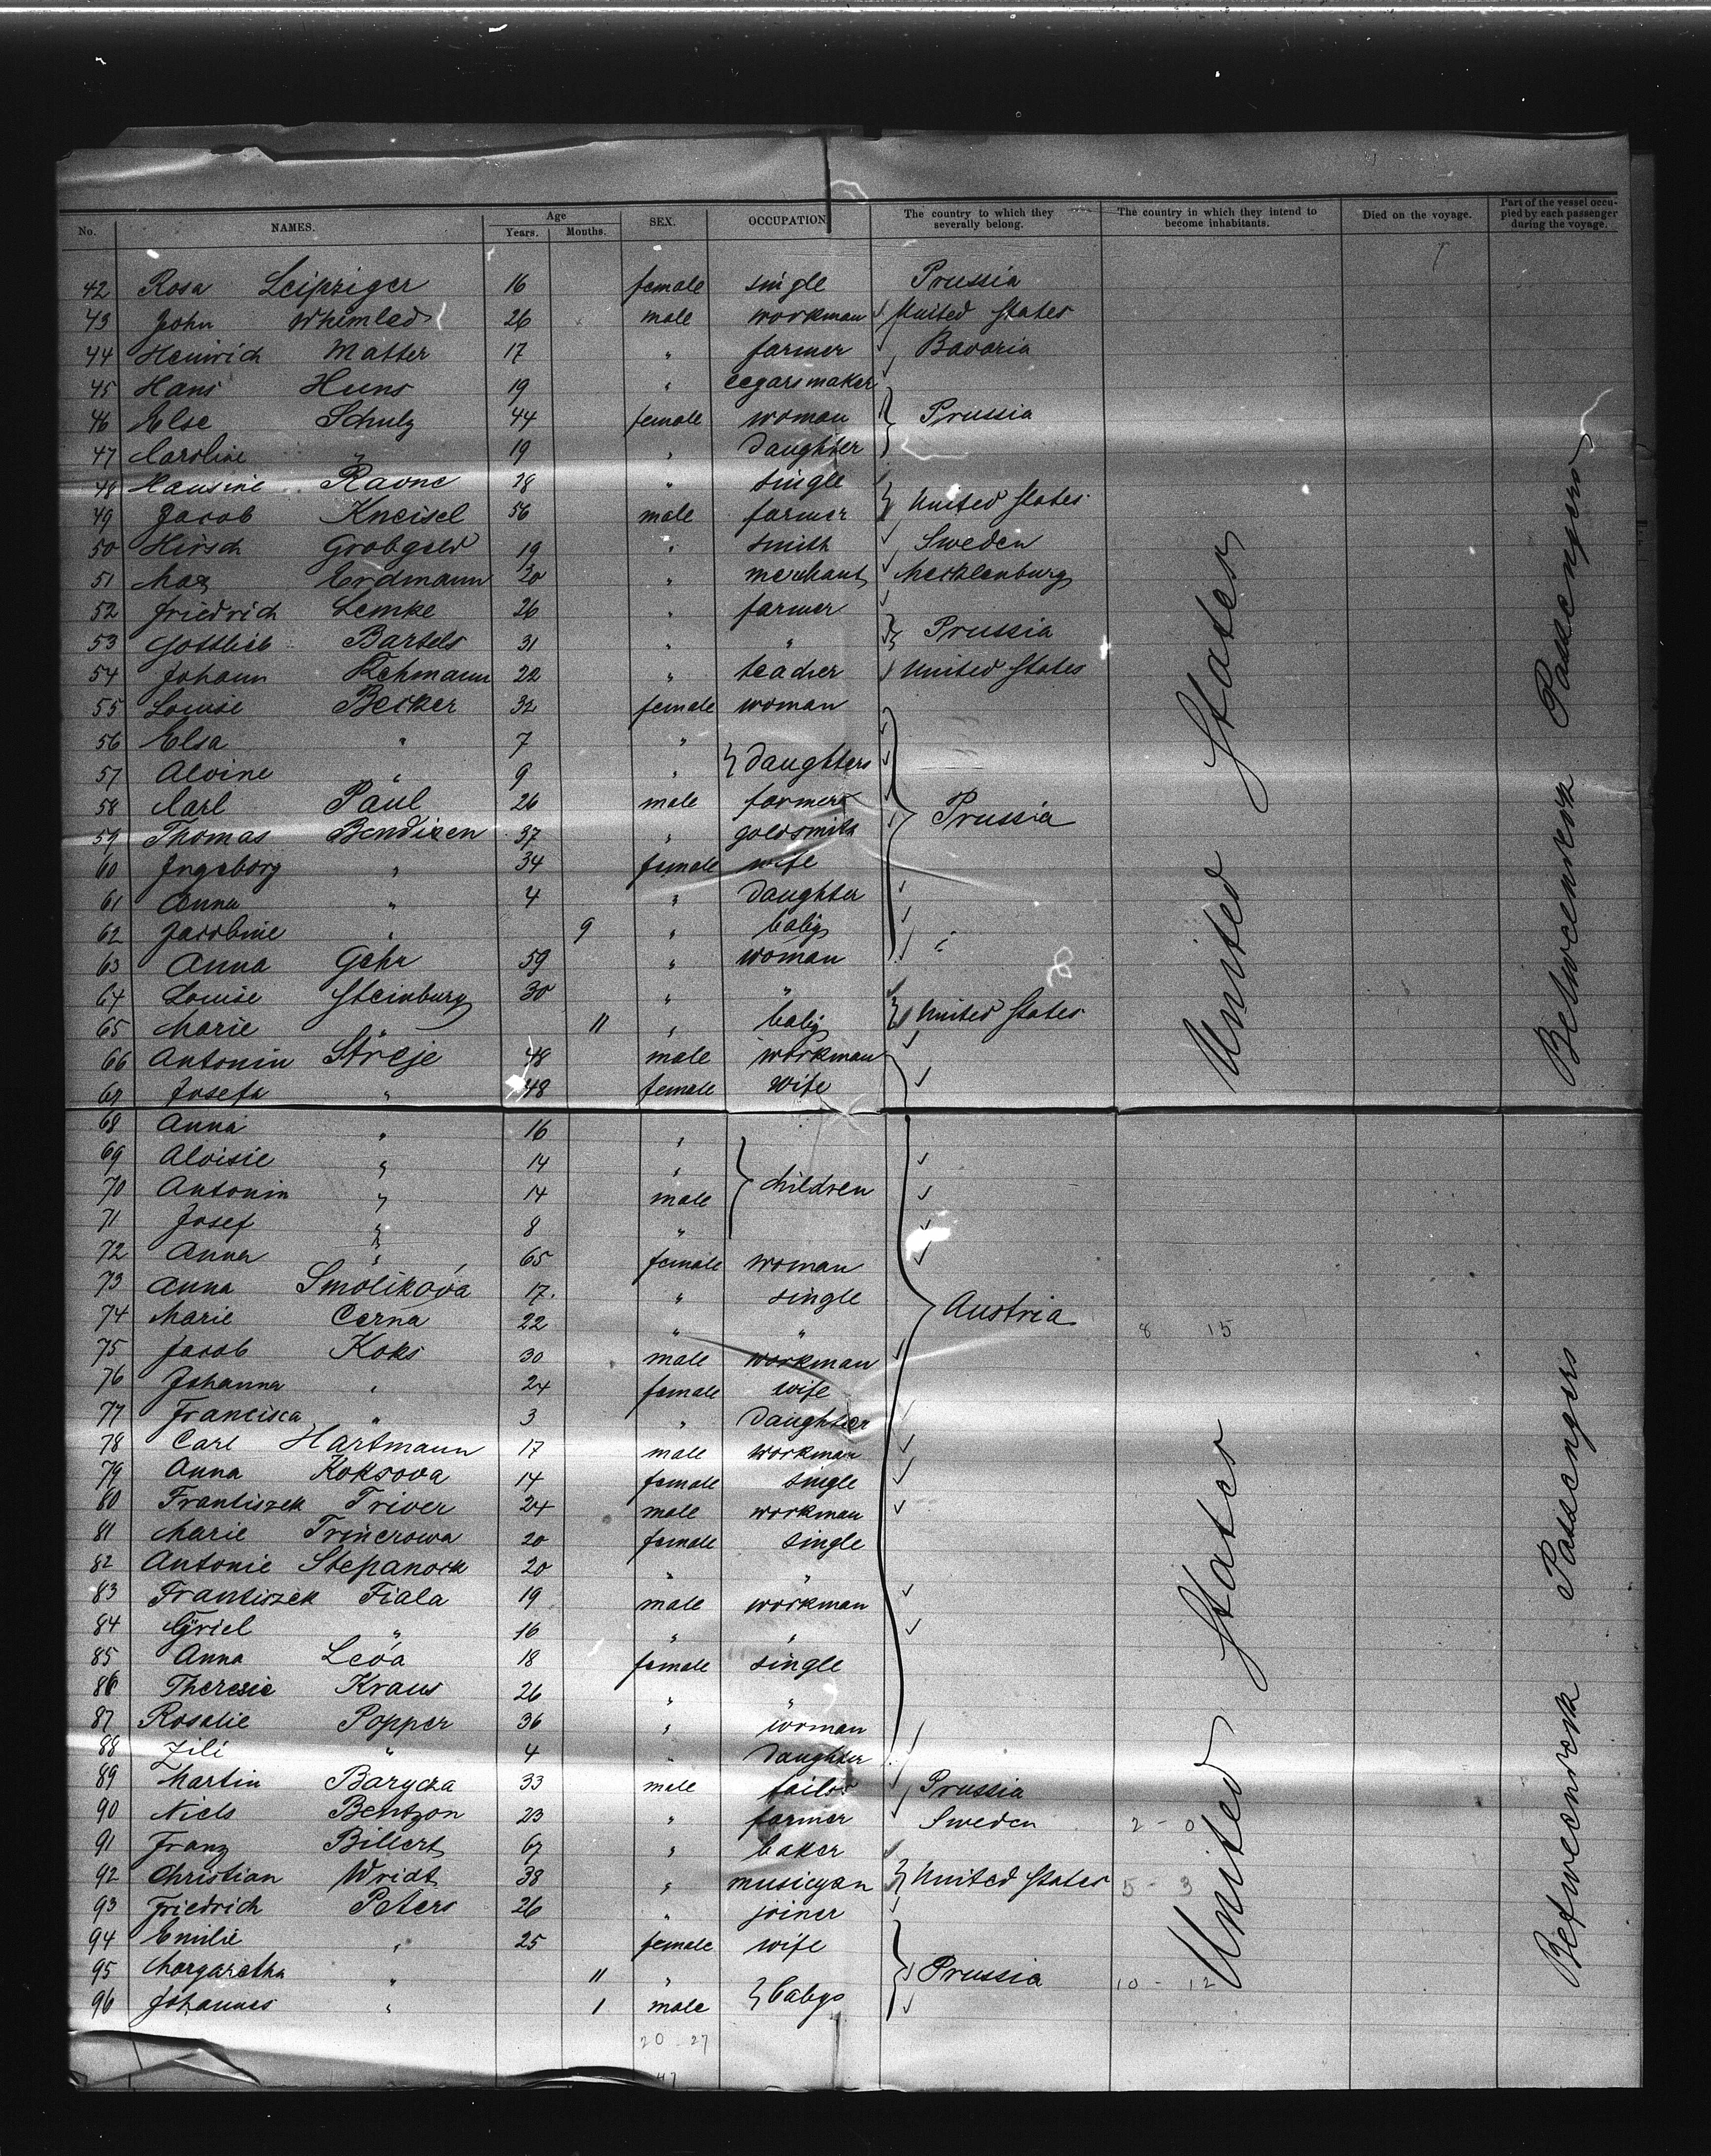 No. NAMES. Age Years. Months. SEX. OCCUPATION The country to which they severally belong. The country in which they intend to become inhabitants. Died on the voyage. Part of the vessel occupied by each passenger during the voyage.
42 Rosa Leipziger 16 female single Prussia
43 John Whimled 26 male workman United States
44 Heinrich Matter 17 " farmer Bavaria
45 Hans Huns 19 " cegarsmaker
46 Else Schulz 44 female woman Prussia
47 Caroline " 19 " daughter
48 Hansine Raone 38 " single
49 Jacob Kneisel 56 male farmer United States
50 Hirsch Grobgeld 19 " smith Sweden
51 Max Erdmann 20 " merchant Mecklenburg
52 Friedrich Lemke 26 " farmer
53 Gottlieb Bartels 31 " " Prussia
54 Johann Rehmann 22 " teacher United States
55 Louise Becker 32 female woman
56 Elsa " 7 "
57 Alvine " 9 " daughters
58 Carl Paul 26 male farmer Prussia
59 Thomas Bendixen 37 " goldsmith
60 Ingeborg " 34 female wife
61 Anna " 4 " daughter
62 Jacobine " 9 " baby
63 Anna Gehr 59 " woman
64 Louise Steinburg 30 " "
65 Marie " 11 " baby United States
66 Antonin Streje 48 male workman
67 Josefa " 48 female wife
68 Anna " 16 "
69 Aloisie " 14 "
70 Antonin " 14 male children
71 Josef " 8 "
72 Anna " 65 female woman
73 Anna Smolikova 17 " single
74 Marie Cerna 22 " " Austria 8 15
75 Jacob Koks 30 male workman
76 Johanna " 24 female wife
77 Francisca " 3 " daughter
78 Carl Hartmann 17 male workman
79 Anna Koksova 14 female single
80 Frantiszek Triver 24 male workman
81 Marie Trincrowa 20 female single
82 Antonie Stepanock 20 " "
83 Frantiszek Fiala 19 male workman
84 Cyriel " 16 " "
85 Anna Leva 18 female single
86 Theresie Kraus 26 " "
87 Rosalie Popper 36 " woman
88 Zili " 4 " daughter
89 Martin Barycza 33 male tailor Prussia
90 Niels Bentzon 23 " farmer Sweden 2 - 0
91 Franz Billert 67 " baker
92 Christian Wridt 38 " musicyan United States 5 - 3
93 Friedrich Peters 26 " joiner
94 Emilie " 25 female wife
95 Margaretha " 11 " Prussia 10 - 12
96 Johannes " 1 male babys
20 27
47
United States
United States
Betweendeck Passengers
Betweendeck Passengers